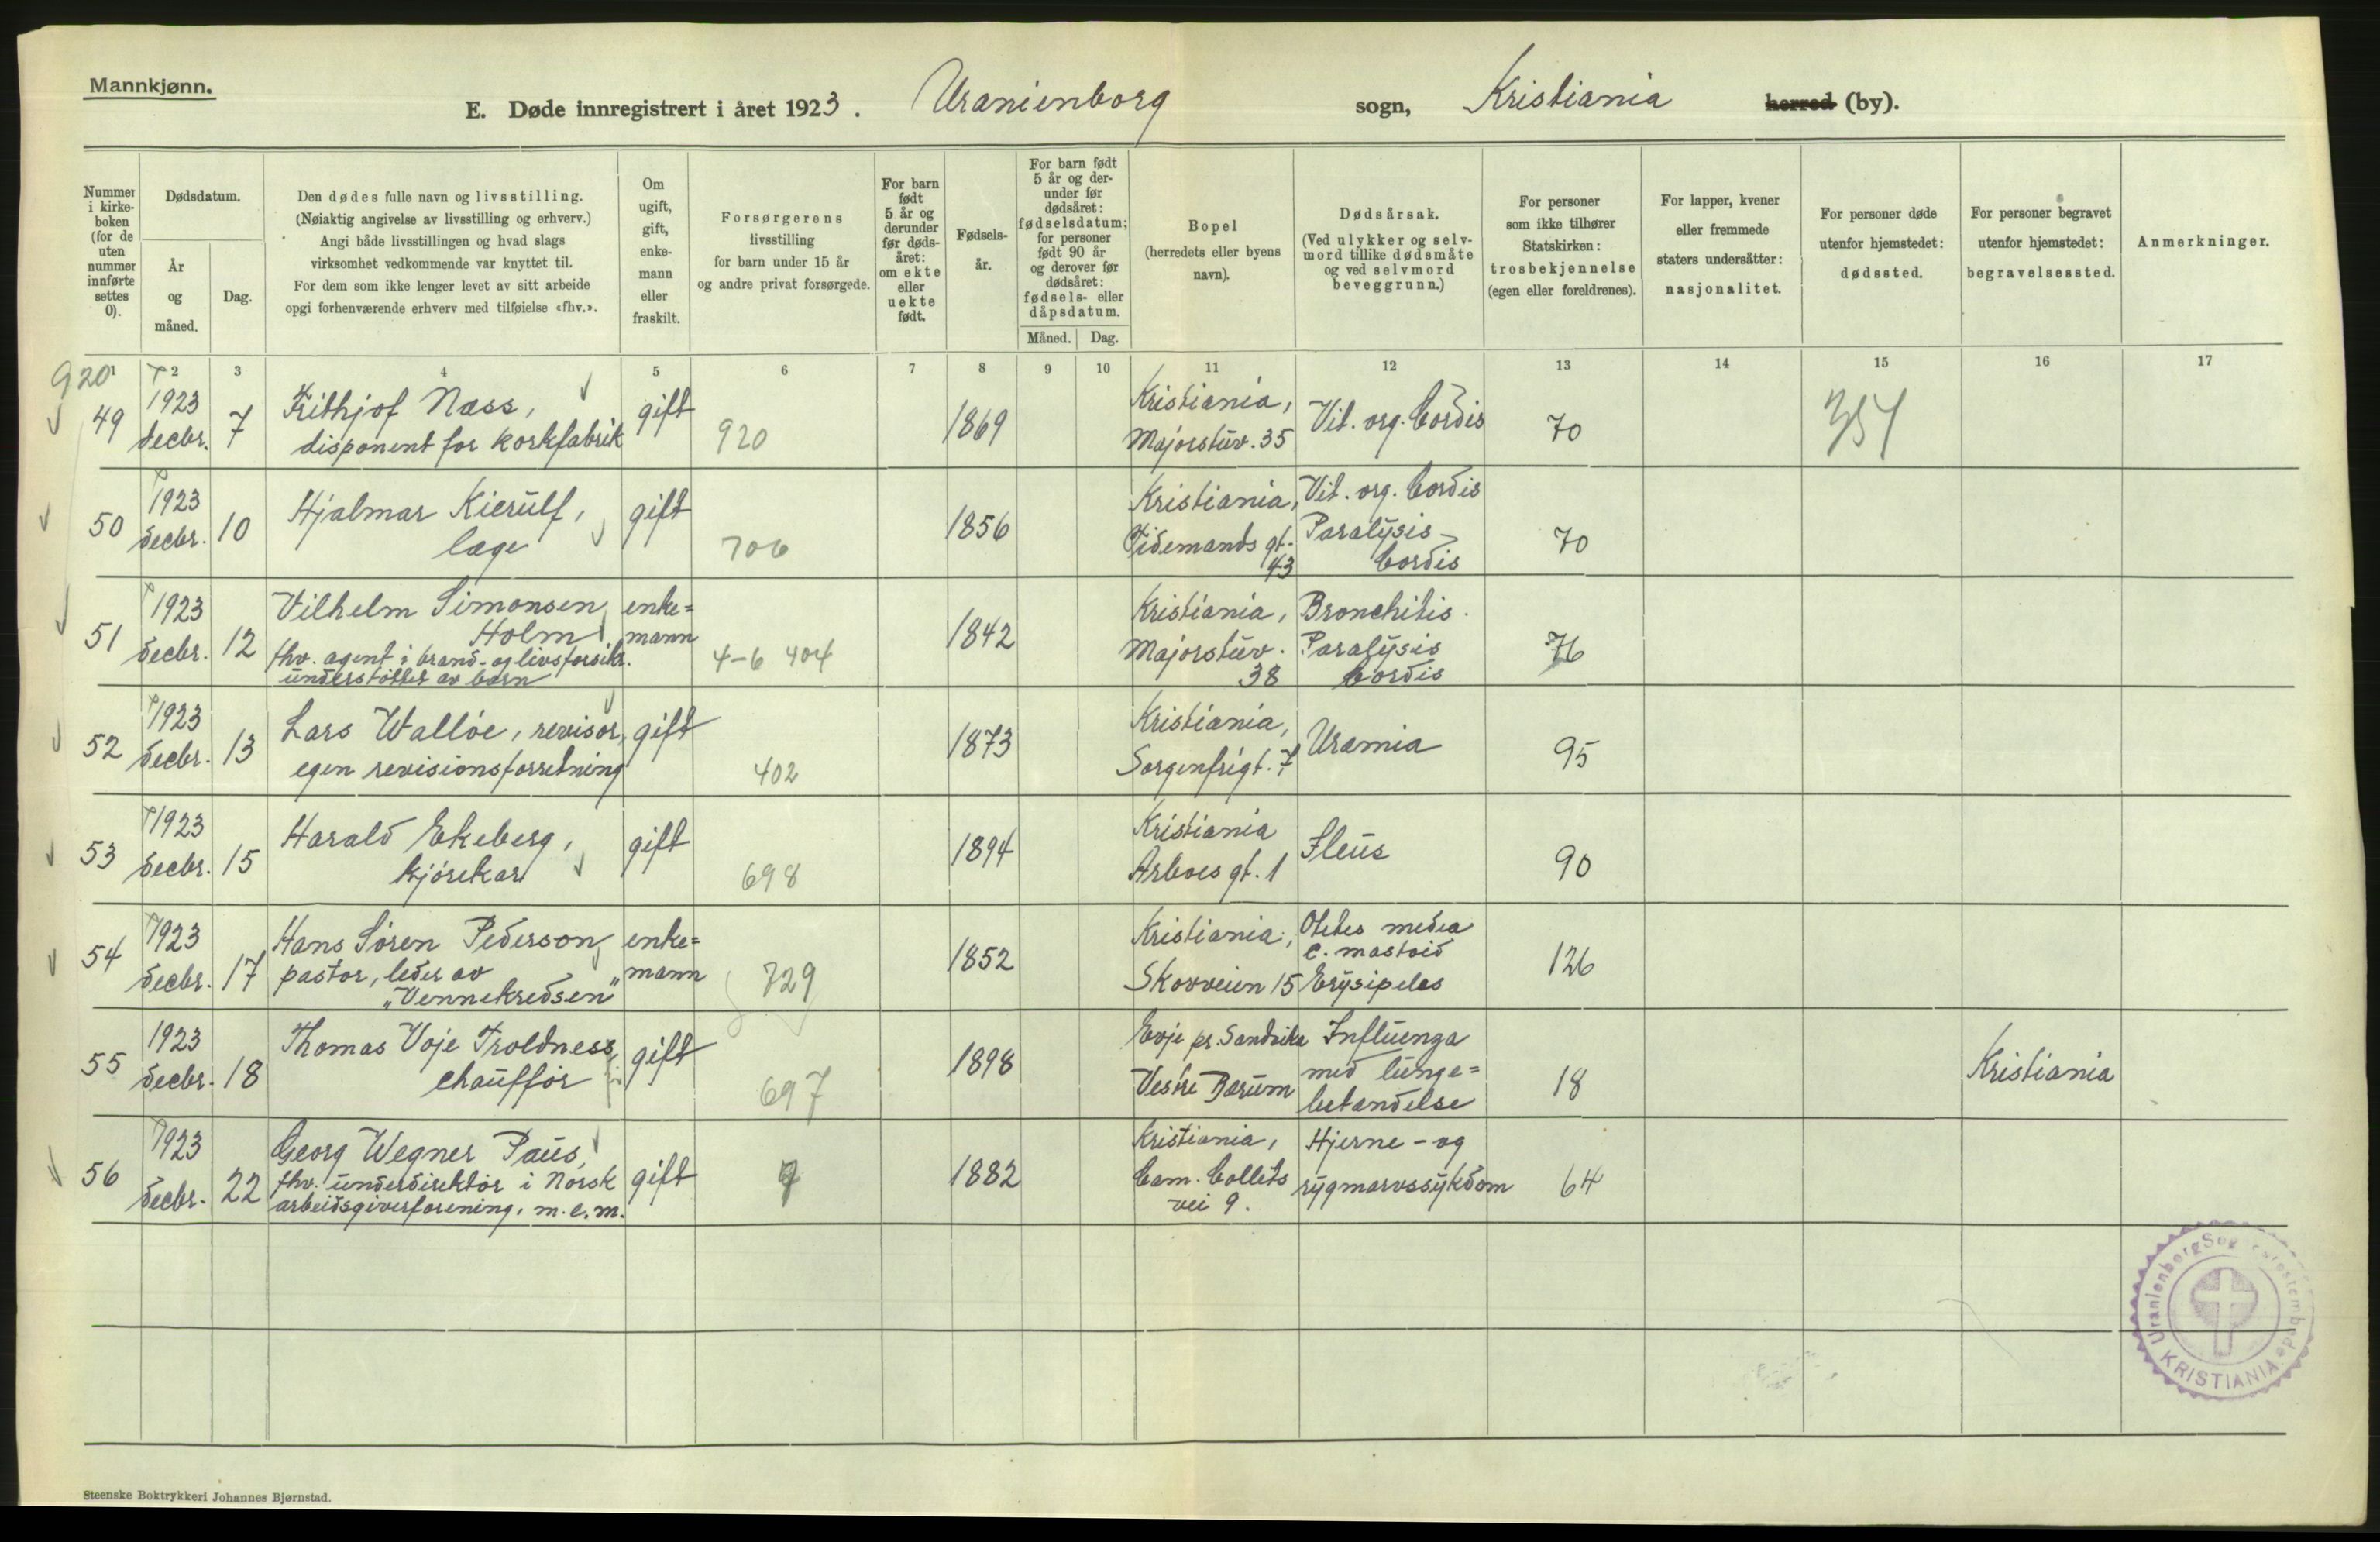 Mannkjønn.
E. Døde innregistrert i året 1923. Uranienborg sogn, Kristiania herred (by).
Nummer i kirke-boken (for de uten nummer innførte settes 0).
Dødsdatum.
År og måned.
Dag.
Den dødes fulle navn og livsstilling.
(Nøiaktig angivelse av livsstilling og erhverv.)
Angi både livsstillingen og hvad slags
virksomhet vedkommende var knyttet til.
For dem som ikke lenger levet av sitt arbeide
opgi forhenværende erhverv med tilføielse «fhv.».
Om ugift, gift, enke-mann eller fraskilt.
Forsørgerens
livsstilling
for barn under 15 år
og andre privat forsørgede.
For barn født 5 år og derunder før døds-året: om ekte eller uekte født.
Fødsels-år.
For barn født 5 år og der-under før dødsåret: fødselsdatum; for personer født 90 år og derover før dødsåret: fødsels- eller dåpsdatum.
Måned. Dag.
Bopel
(herredets eller byens
navn).
Dødsårsak.
(Ved ulykker og selv-
mord tillike dødsmåte
og ved selvmord
beveggrunn.)
For personer
som ikke tilhører
Statskirken:
trosbekjennelse
(egen eller foreldrenes).
For lapper, kvener
eller fremmede
staters undersåtter:
nasjonalitet.
For personer døde
utenfor hjemstedet:
dødssted.
For personer begravet
utenfor hjemstedet:
begravelsessted.
Anmerkninger.
1 2 3 4 5 6 7 8 9 10 11 12 13 14 15 16 17
920
49 1923 decbr. 7 Frithjof Næss, gift 920 1869 Kristiania, Vit. org. Cordis 70 351
disponent for korkfabrik Majorstuv. 35
50 1923 decbr. 10 Hjalmar Kierulf, gift 706 1856 Kristiania, Vit. org. Cordis 70
læge Tidemands gt. 43 Paralysis Cordis
51 1923 decbr. 12 Vilhelm Simonsen enke= 4-6 404 1842 Kristiania, Bronchitis. 76
Holm mann Majorstuv. 38 Paralysis Cordis
fhv. agent i brand- og livsforsikr.
understøttet av børn
52 1923 decbr. 13 Lars Walløe, revisor, gift 402 1873 Kristiania, Uræmia 95
egen revisionsforretning Sorgenfrigt. 7
53 1923 decbr. 15 Harald Ekeberg, gift 698 1894 Kristiania Ileus 90
kjørekar Arboes gt. 1
54 1923 decbr. 17 Hans Søren Pederson enke= 729 1852 Kristiania, Otites media 126
pastor, leder av mann Skovveien 15 c. mastoid
„Vennekredsen" Erysipelas
55 1923 decbr. 18 Thomas Voje Troldness, gift 697 1898 Evje pr. Sandvika Influenza 18 Kristiania
chauffør Vestre Bærum med lunge=
betændelse
56 1923 decbr. 22 Georg Wegner Paus, gift 7 1882 Kristiania, Hjerne- og 64
fhv. underdirektør i Norsk Cam. Colletts rygmarvssykdom
arbeidsgiverforening, m.e.m. vei 9.
KRISTIANIA
Steenske Boktrykkeri Johannes Bjørnstad.